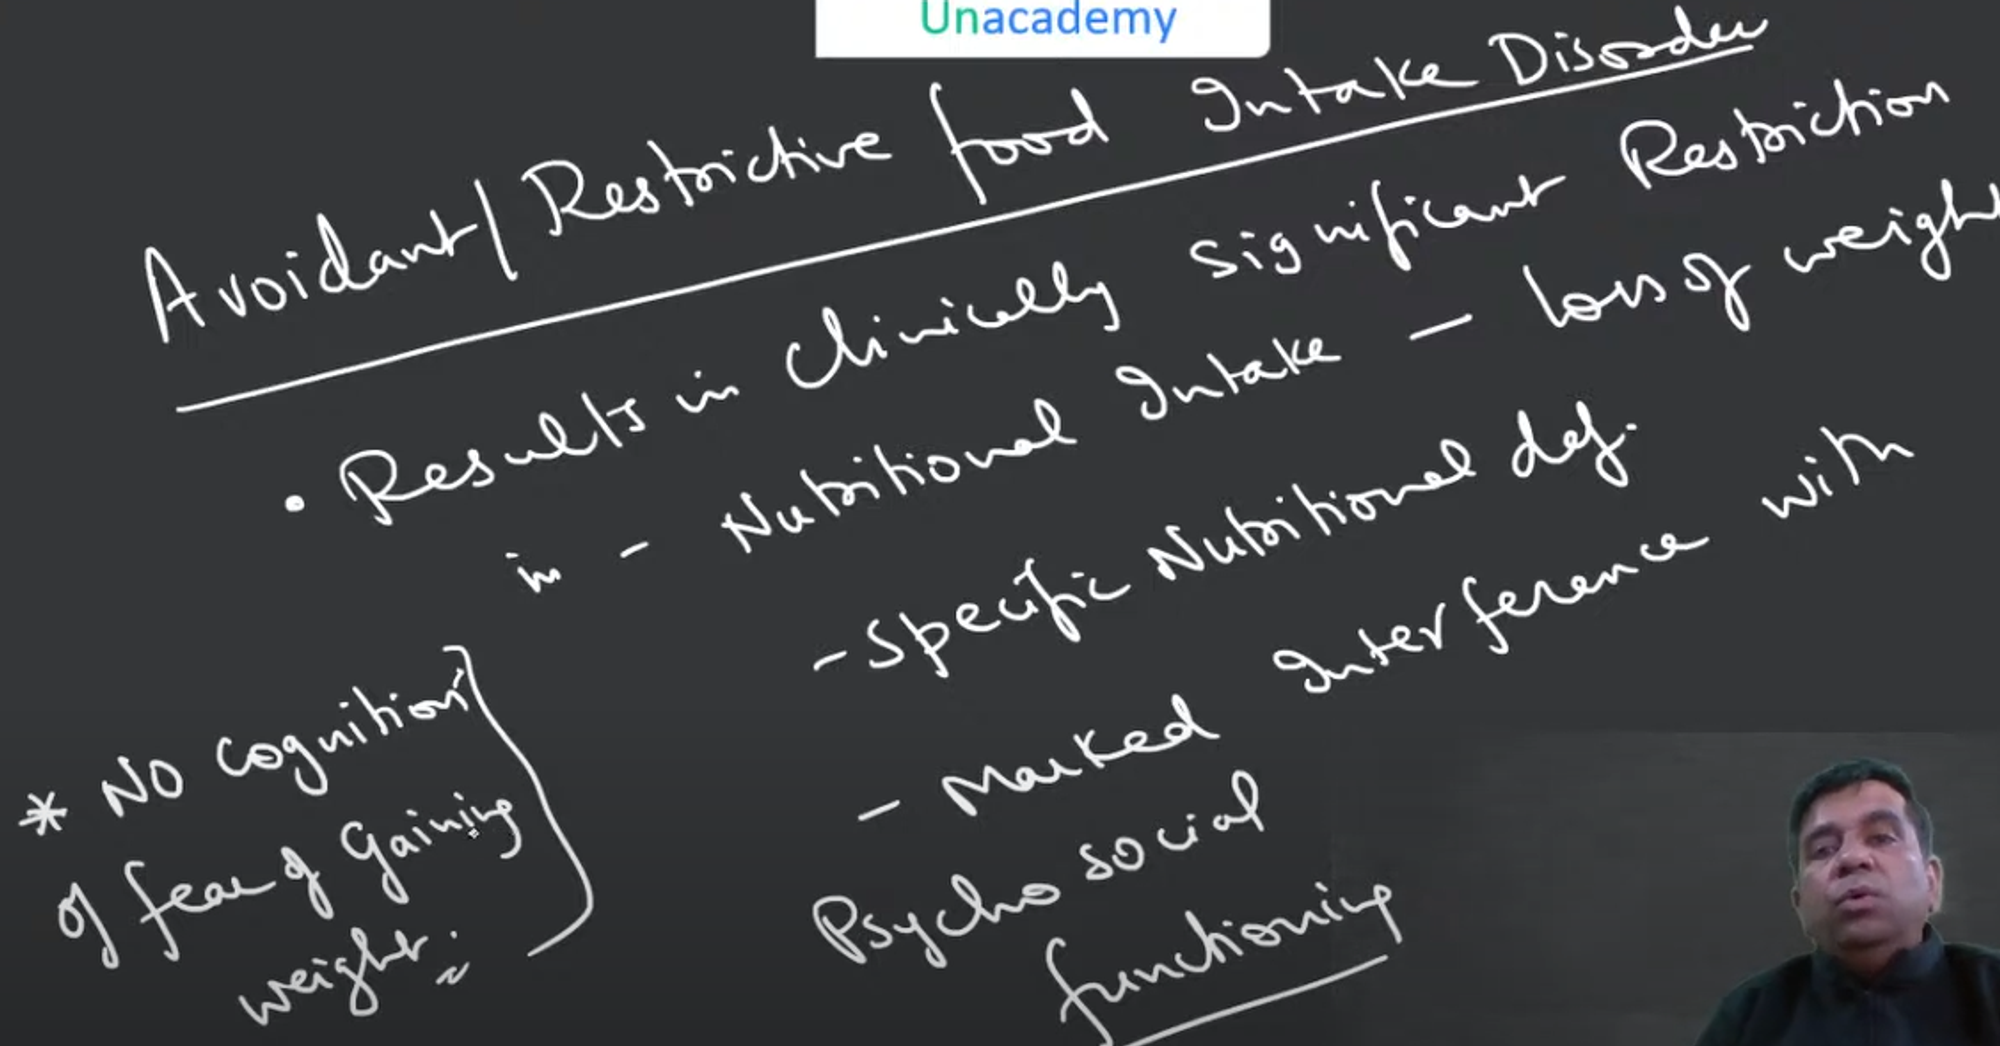 Unacademy
Avoidant/Restrictive food Intake Disorder
• Results in clinically significant Restriction
in - Nutritional Intake - loss of weight
- Specific Nutritional def.
- Marked Interference with
Psycho social
functioning
* NO cognition
of fear of gaining
weight.